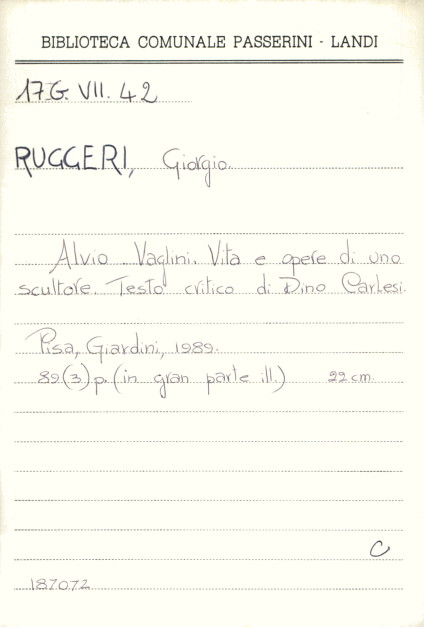 BIBLIOTECA COMUNALE PASSERINI - LANDI
17.G. VII. 42
RUGGERI, Giorgio.
Alvio Vaglini. Vita e opere di uno
scultore. Testo critico di Dino Carlesi.
Pisa, Giardini, 1989.
89(3)p. (in gran parte ill.) 22 cm.
C
187072